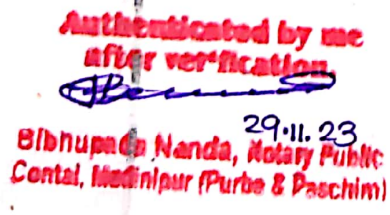 Authenticated by me
after verification
29.11.23
Bibhupada Nanda, Notary Public
Contai, Medinipur (Purba & Paschim)